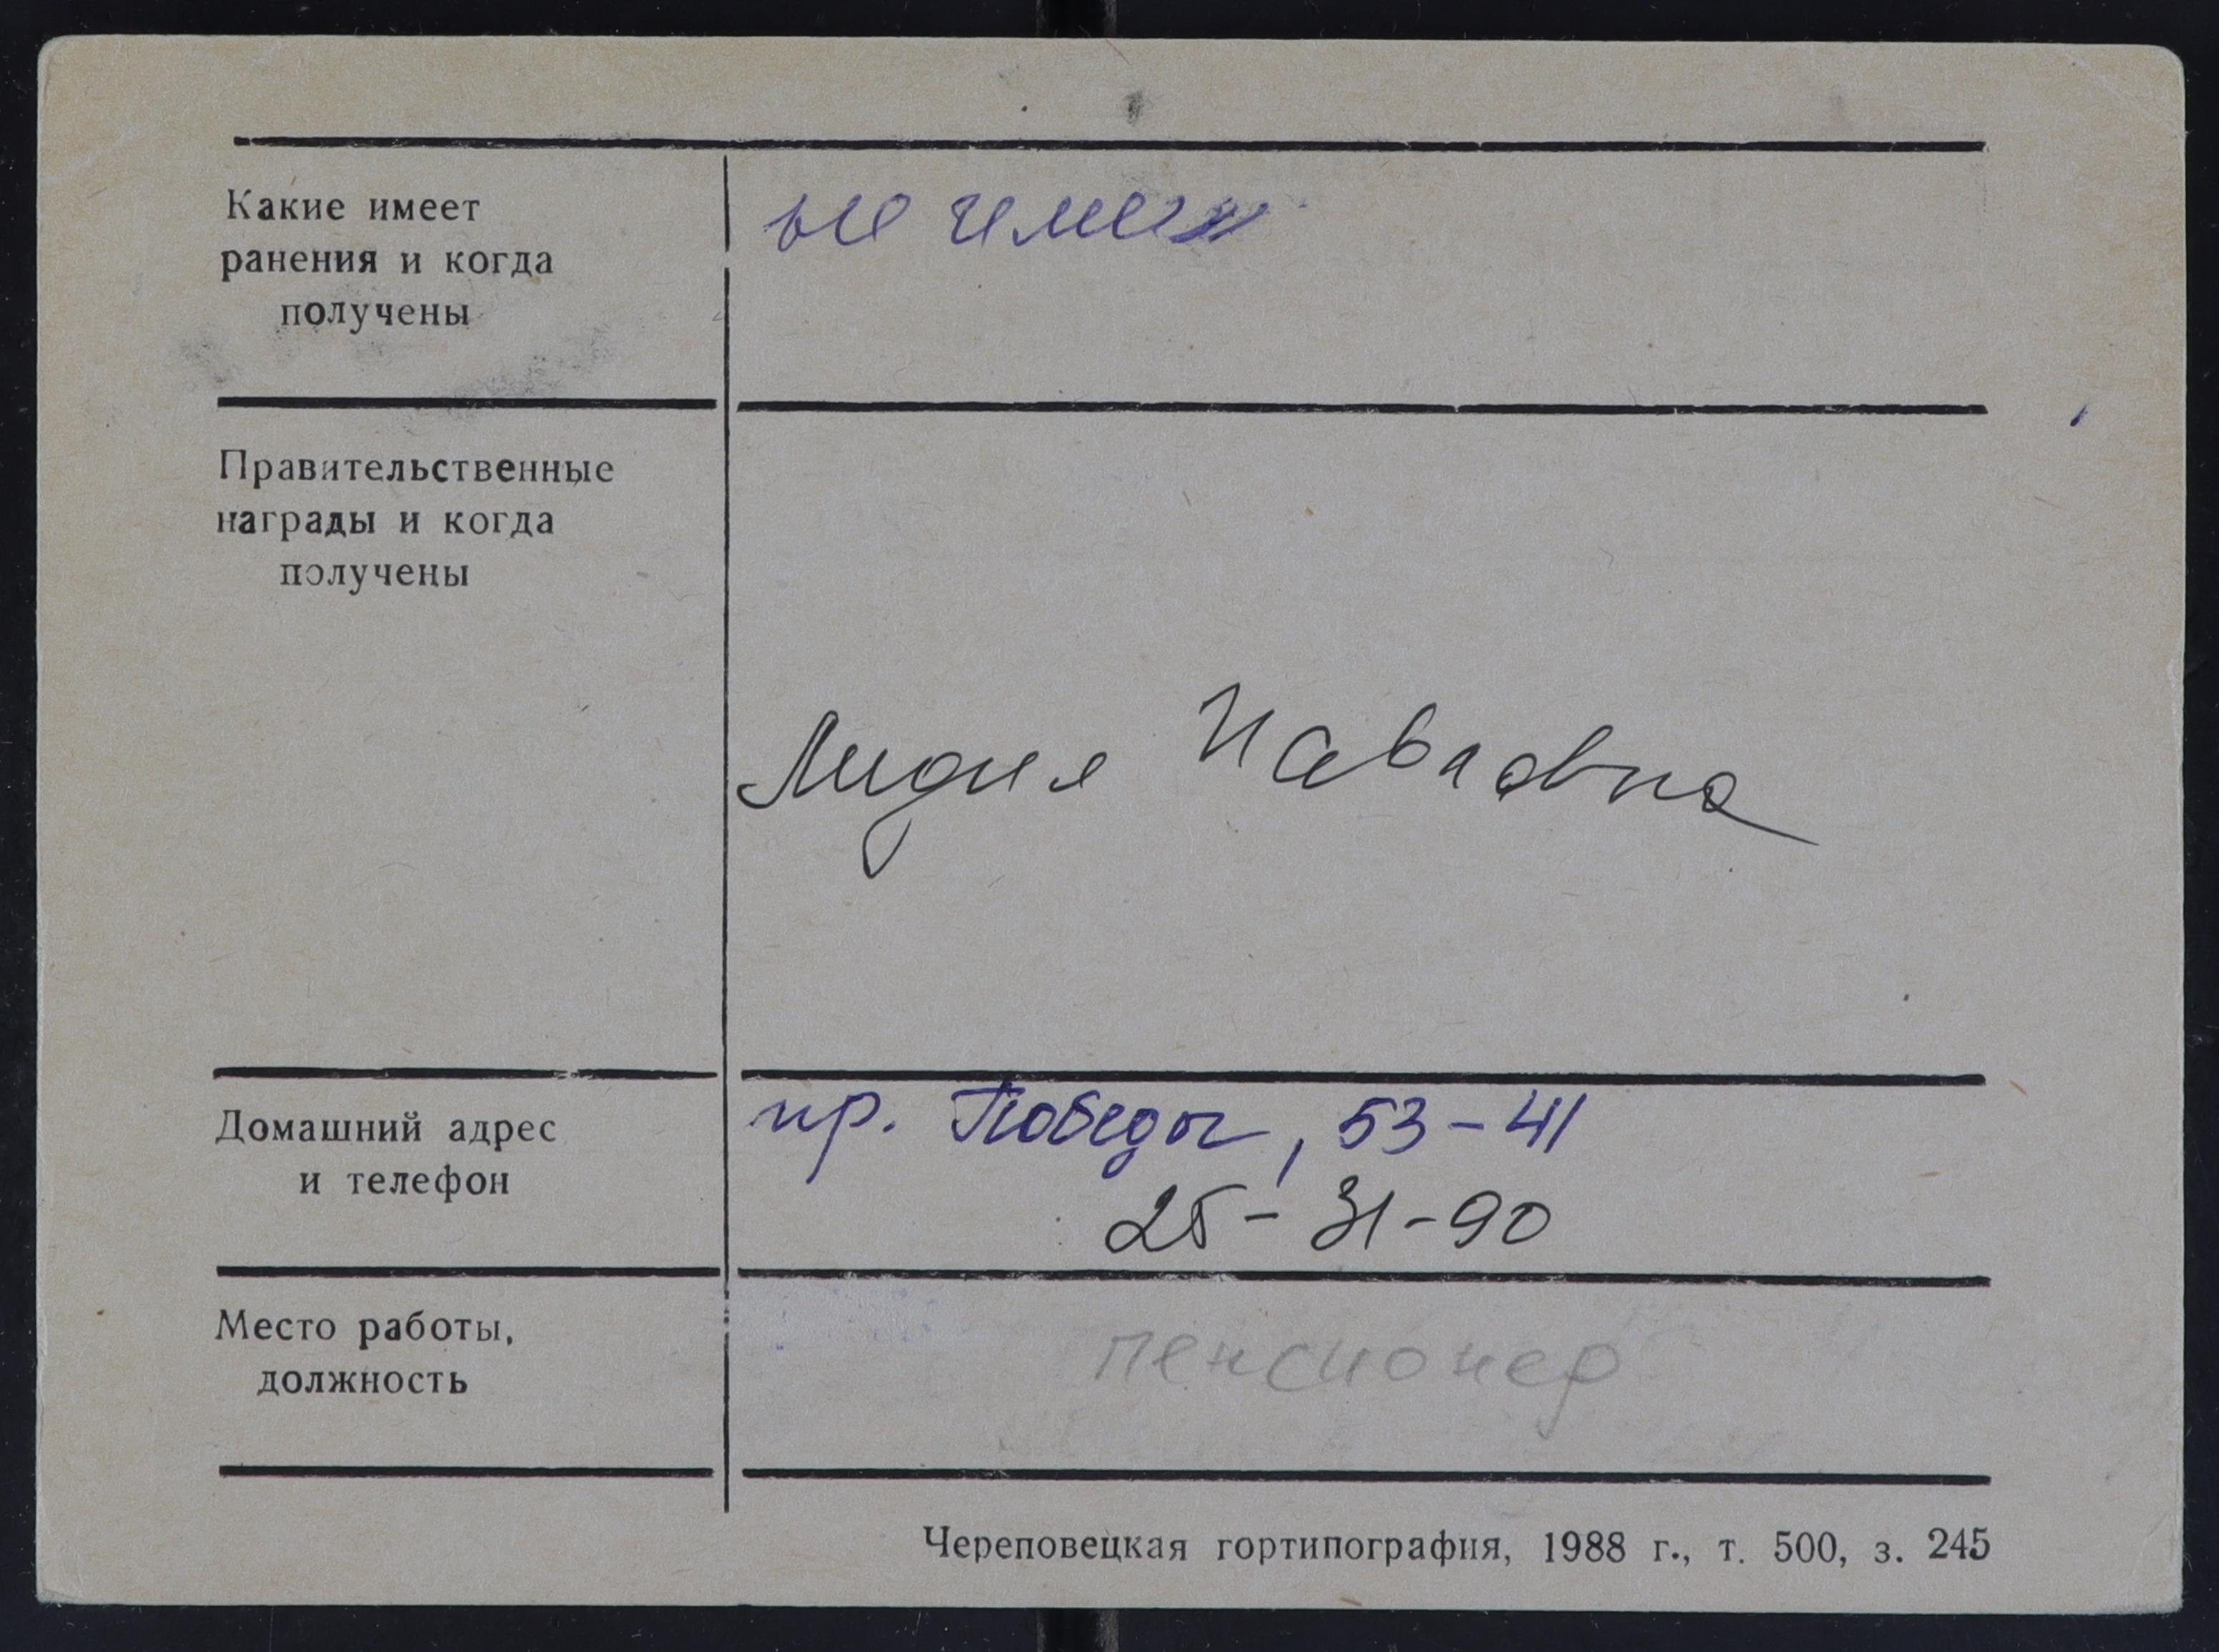 Какие имеет
ранения и когда
получены
не имею
Правительственные
награды и когда
получены
Лидия Павловна
Домашний адрес
и телефон
пр. Победы, 53-41
25-31-90
Место работы,
должность
пенсионер
Череповецкая гортипография, 1988 г., т. 500, з. 245